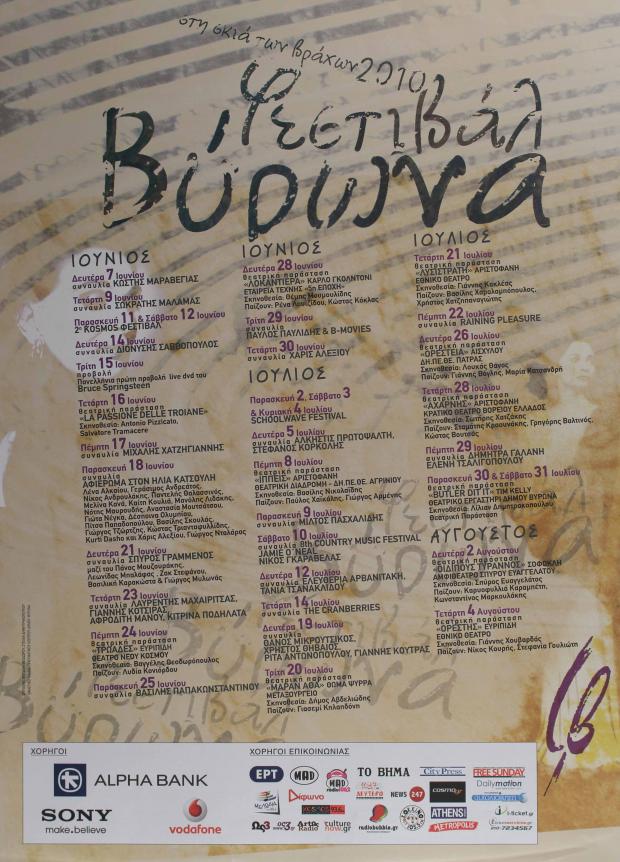 στη σκιά των βράχων 2010
Φεστιβάλ
Βύρωνα
ΙΟΥΝΙΟΣ
Δευτέρα 7 Ιουνίου
συναυλία ΚΩΣΤΗΣ ΜΑΡΑΒΕΓΙΑΣ
Τετάρτη 9 Ιουνίου
συναυλία ΣΩΚΡΑΤΗΣ ΜΑΛΑΜΑΣ
Παρασκευή 11 & Σάββατο 12 Ιουνίου
2ο KOSMOS ΦΕΣΤΙΒΑΛ
Δευτέρα 14 Ιουνίου
συναυλία ΔΙΟΝΥΣΗΣ ΣΑΒΒΟΠΟΥΛΟΣ
Τρίτη 15 Ιουνίου
προβολή
Πανελλήνια πρώτη προβολή live dvd του
Bruce Springsteen
Τετάρτη 16 Ιουνίου
θεατρική παράσταση
«LA PASSIONE DELLE TROIANE»
Σκηνοθεσία: Antonio Pizzicato,
Salvatore Tramacere
Πέμπτη 17 Ιουνίου
συναυλία ΜΙΧΑΛΗΣ ΧΑΤΖΗΓΙΑΝΝΗΣ
Παρασκευή 18 Ιουνίου
συναυλία
ΑΦΙΕΡΩΜΑ ΣΤΟΝ ΗΛΙΑ ΚΑΤΣΟΥΛΗ
Λένα Αλκαίου, Γεράσιμος Ανδρεάτος,
Νίκος Ανδρουλάκης, Παντελής Θαλασσινός,
Μελίνα Κανά, Καίτη Κουλλιά, Μανώλης Λιδάκης,
Νότης Μαυρουδής, Αναστασία Μουτσάτσου,
Γιώτα Νέγκα, Δέσποινα Ολυμπίου,
Πίτσα Παπαδοπούλου, Βασίλης Σκουλάς,
Γιώργος Τζώρτζης, Κώστας Τριανταφυλλίδης,
Kurti Dasho και Χάρις Αλεξίου, Γιώργος Νταλάρας
Δευτέρα 21 Ιουνίου
συναυλία ΣΠΥΡΟΣ ΓΡΑΜΜΕΝΟΣ
μαζί του Πάνος Μουζουράκης,
Λεωνίδας Μπαλάφας, Ζακ Στεφάνου,
Βασιλική Καρακώστα & Γιώργος Μυλωνάς
Τετάρτη 23 Ιουνίου
συναυλία ΛΑΥΡΕΝΤΗΣ ΜΑΧΑΙΡΙΤΣΑΣ,
ΓΙΑΝΝΗΣ ΚΟΤΣΙΡΑΣ,
ΑΦΡΟΔΙΤΗ ΜΑΝΟΥ, ΚΙΤΡΙΝΑ ΠΟΔΗΛΑΤΑ
Πέμπτη 24 Ιουνίου
θεατρική παράσταση
«ΤΡΩΑΔΕΣ» ΕΥΡΙΠΙΔΗ
ΘΕΑΤΡΟ ΝΕΟΥ ΚΟΣΜΟΥ
Σκηνοθεσία: Βαγγέλης Θεοδωρόπουλος
Παίζουν: Λυδία Κονιόρδου
Παρασκευή 25 Ιουνίου
συναυλία ΒΑΣΙΛΗΣ ΠΑΠΑΚΩΝΣΤΑΝΤΙΝΟΥ
ΙΟΥΝΙΟΣ
Δευτέρα 28 Ιουνίου
θεατρική παράσταση
«ΛΟΚΑΝΤΙΕΡΑ» ΚΑΡΛΟ ΓΚΟΛΝΤΟΝΙ
ΕΤΑΙΡΕΙΑ ΤΕΧΝΗΣ «5η ΕΠΟΧΗ»
Σκηνοθεσία: Θέμης Μουμουλίδης
Παίζουν: Ρένια Λουιζίδου, Κώστας Κόκλας
Τρίτη 29 Ιουνίου
συναυλία
ΠΑΥΛΟΣ ΠΑΥΛΙΔΗΣ & B-MOVIES
Τετάρτη 30 Ιουνίου
συναυλία ΧΑΡΙΣ ΑΛΕΞΙΟΥ
ΙΟΥΛΙΟΣ
Παρασκευή 2, Σάββατο 3
& Κυριακή 4 Ιουλίου
SCHOOLWAVE FESTIVAL
Δευτέρα 5 Ιουλίου
συναυλία ΑΛΚΗΣΤΙΣ ΠΡΩΤΟΨΑΛΤΗ,
ΣΤΕΦΑΝΟΣ ΚΟΡΚΟΛΗΣ
Πέμπτη 8 Ιουλίου
θεατρική παράσταση
«ΙΠΠΕΙΣ» ΑΡΙΣΤΟΦΑΝΗ
ΘΕΑΤΡΙΚΗ ΔΙΑΔΡΟΜΗ - ΔΗ.ΠΕ.ΘΕ. ΑΓΡΙΝΙΟΥ
Σκηνοθεσία: Βασίλης Νικολαΐδης
Παίζουν: Παύλος Χαϊκάλης, Γιώργος Αρμένης
Παρασκευή 9 Ιουλίου
συναυλία ΜΙΛΤΟΣ ΠΑΣΧΑΛΙΔΗΣ
Σάββατο 10 Ιουλίου
συναυλία 8th COUNTRY MUSIC FESTIVAL
JAMIE O'NEAL
ΝΙΚΟΣ ΓΚΑΡΑΒΕΛΑΣ
Δευτέρα 12 Ιουλίου
συναυλία ΕΛΕΥΘΕΡΙΑ ΑΡΒΑΝΙΤΑΚΗ,
ΤΑΝΙΑ ΤΣΑΝΑΚΛΙΔΟΥ
Τετάρτη 14 Ιουλίου
συναυλία THE CRANBERRIES
Δευτέρα 19 Ιουλίου
συναυλία
ΘΑΝΟΣ ΜΙΚΡΟΥΤΣΙΚΟΣ,
ΧΡΗΣΤΟΣ ΘΗΒΑΙΟΣ,
ΡΙΤΑ ΑΝΤΩΝΟΠΟΥΛΟΥ, ΓΙΑΝΝΗΣ ΚΟΥΤΡΑΣ
Τρίτη 20 Ιουλίου
θεατρική παράσταση
«ΜΑΡΑΝ ΑΘΑ» ΘΩΜΑ ΨΥΡΡΑ
ΜΕΤΑΞΟΥΡΓΕΙΟ
Σκηνοθεσία: Δήμος Αβδελιώδης
Παίζουν: Γιασεμί Κηλαηδόνη
ΙΟΥΛΙΟΣ
Τετάρτη 21 Ιουλίου
θεατρική παράσταση
«ΛΥΣΙΣΤΡΑΤΗ» ΑΡΙΣΤΟΦΑΝΗ
ΕΘΝΙΚΟ ΘΕΑΤΡΟ
Σκηνοθεσία: Γιάννης Κακλέας
Παίζουν: Βασίλης Χαραλαμπόπουλος,
Χρήστος Χατζηπαναγιώτης
Πέμπτη 22 Ιουλίου
συναυλία RAINING PLEASURE
Δευτέρα 26 Ιουλίου
θεατρική παράσταση
«ΟΡΕΣΤΕΙΑ» ΑΙΣΧΥΛΟΥ
ΔΗ.ΠΕ.ΘΕ. ΠΑΤΡΑΣ
Σκηνοθεσία: Λουκάς Θάνος
Παίζουν: Γιάννης Βόγλης, Μαρία Κατσανδρή
Τετάρτη 28 Ιουλίου
θεατρική παράσταση
«ΑΧΑΡΝΗΣ» ΑΡΙΣΤΟΦΑΝΗ
ΚΡΑΤΙΚΟ ΘΕΑΤΡΟ ΒΟΡΕΙΟΥ ΕΛΛΑΔΟΣ
Σκηνοθεσία: Σωτήρης Χατζάκης
Παίζουν: Σταμάτης Κραουνάκης, Γρηγόρης Βαλτινός,
Κώστας Βουτσάς
Πέμπτη 29 Ιουλίου
συναυλία ΔΗΜΗΤΡΑ ΓΑΛΑΝΗ
ΕΛΕΝΗ ΤΣΑΛΙΓΟΠΟΥΛΟΥ
Παρασκευή 30 & Σάββατο 31 Ιουλίου
θεατρική παράσταση
«BUTLER DIT IT» TIM KELLY
ΘΕΑΤΡΙΚΟ ΕΡΓΑΣΤΗΡΙ ΔΗΜΟΥ ΒΥΡΩΝΑ
Σκηνοθεσία: Λίλιαν Δημητρακοπούλου
Θεατρική Παράσταση
ΑΥΓΟΥΣΤΟΣ
Δευτέρα 2 Αυγούστου
θεατρική παράσταση
«ΟΙΔΙΠΟΥΣ ΤΥΡΑΝΝΟΣ» ΣΟΦΟΚΛΗ
ΑΜΦΙΘΕΑΤΡΟ ΣΠΥΡΟΥ ΕΥΑΓΓΕΛΑΤΟΥ
Σκηνοθεσία: Σπύρος Ευαγγελάτος
Παίζουν: Καρυοφυλλιά Καραμπέτη,
Κωνσταντίνος Μαρκουλάκης
Τετάρτη 4 Αυγούστου
θεατρική παράσταση
«ΟΡΕΣΤΗΣ» ΕΥΡΙΠΙΔΗ
ΕΘΝΙΚΟ ΘΕΑΤΡΟ
Σκηνοθεσία: Γιάννης Χουβαρδάς
Παίζουν: Νίκος Κουρής, Στεφανία Γουλιώτη
ΧΟΡΗΓΟΙ
ALPHA BANK
SONY
make.believe
vodafone
ΧΟΡΗΓΟΙ ΕΠΙΚΟΙΝΩΝΙΑΣ
ΕΡΤ
MAD
MAD
ΤΟ ΒΗΜΑ
City Press
FREE SUNDAY
Dailymotion
Δίφωνο
NEWS 247
cosmo.gr
culture
now.gr
radiobubble.gr
ATHENS
METROPOLIS
i-ticket.gr
210-7234567